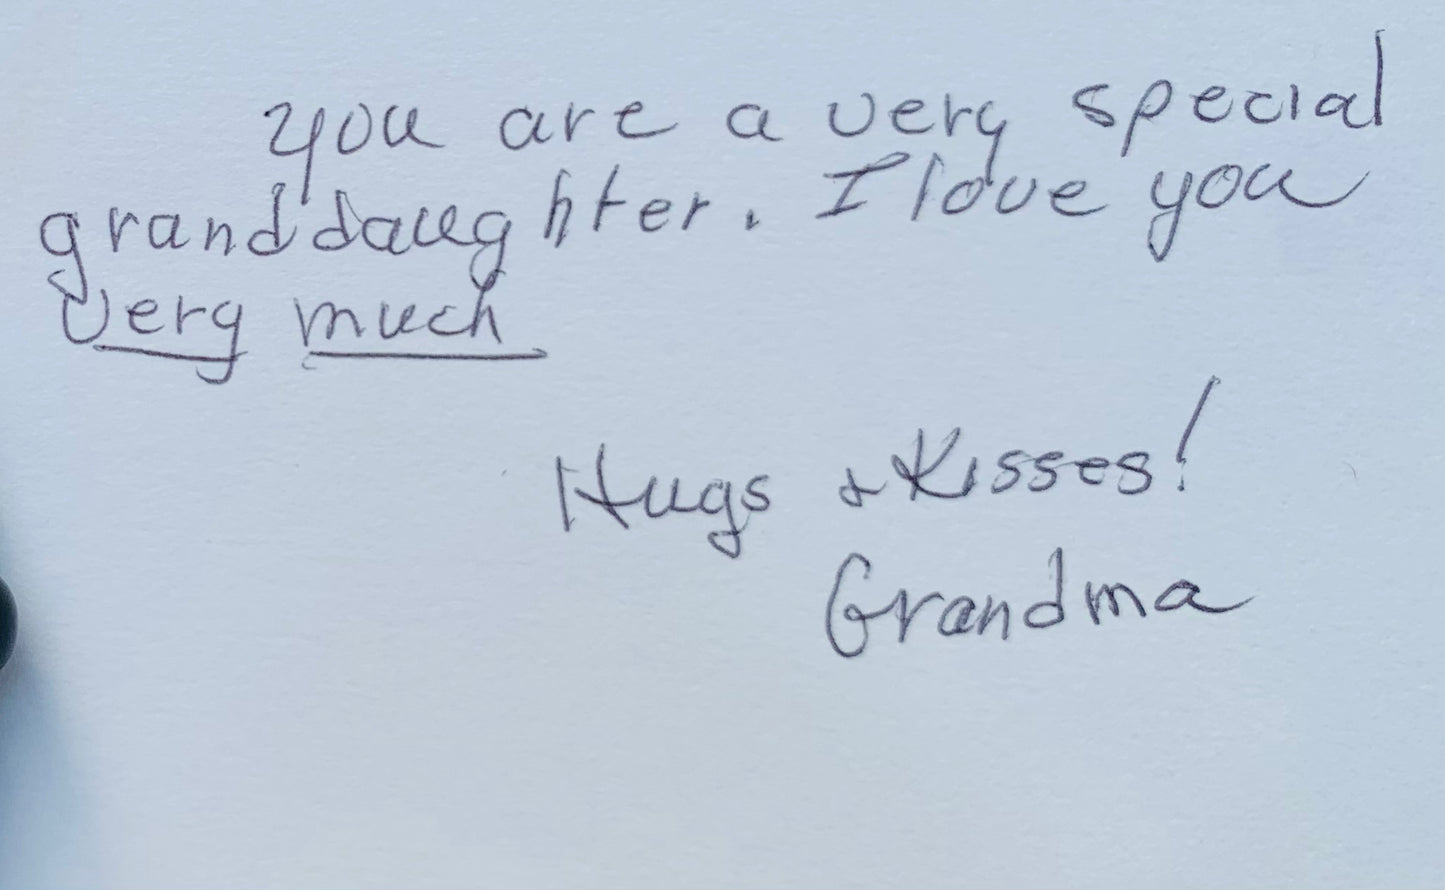 you are a very special
granddaughter. I love you
very much
Hugs & Kisses!
Grandma